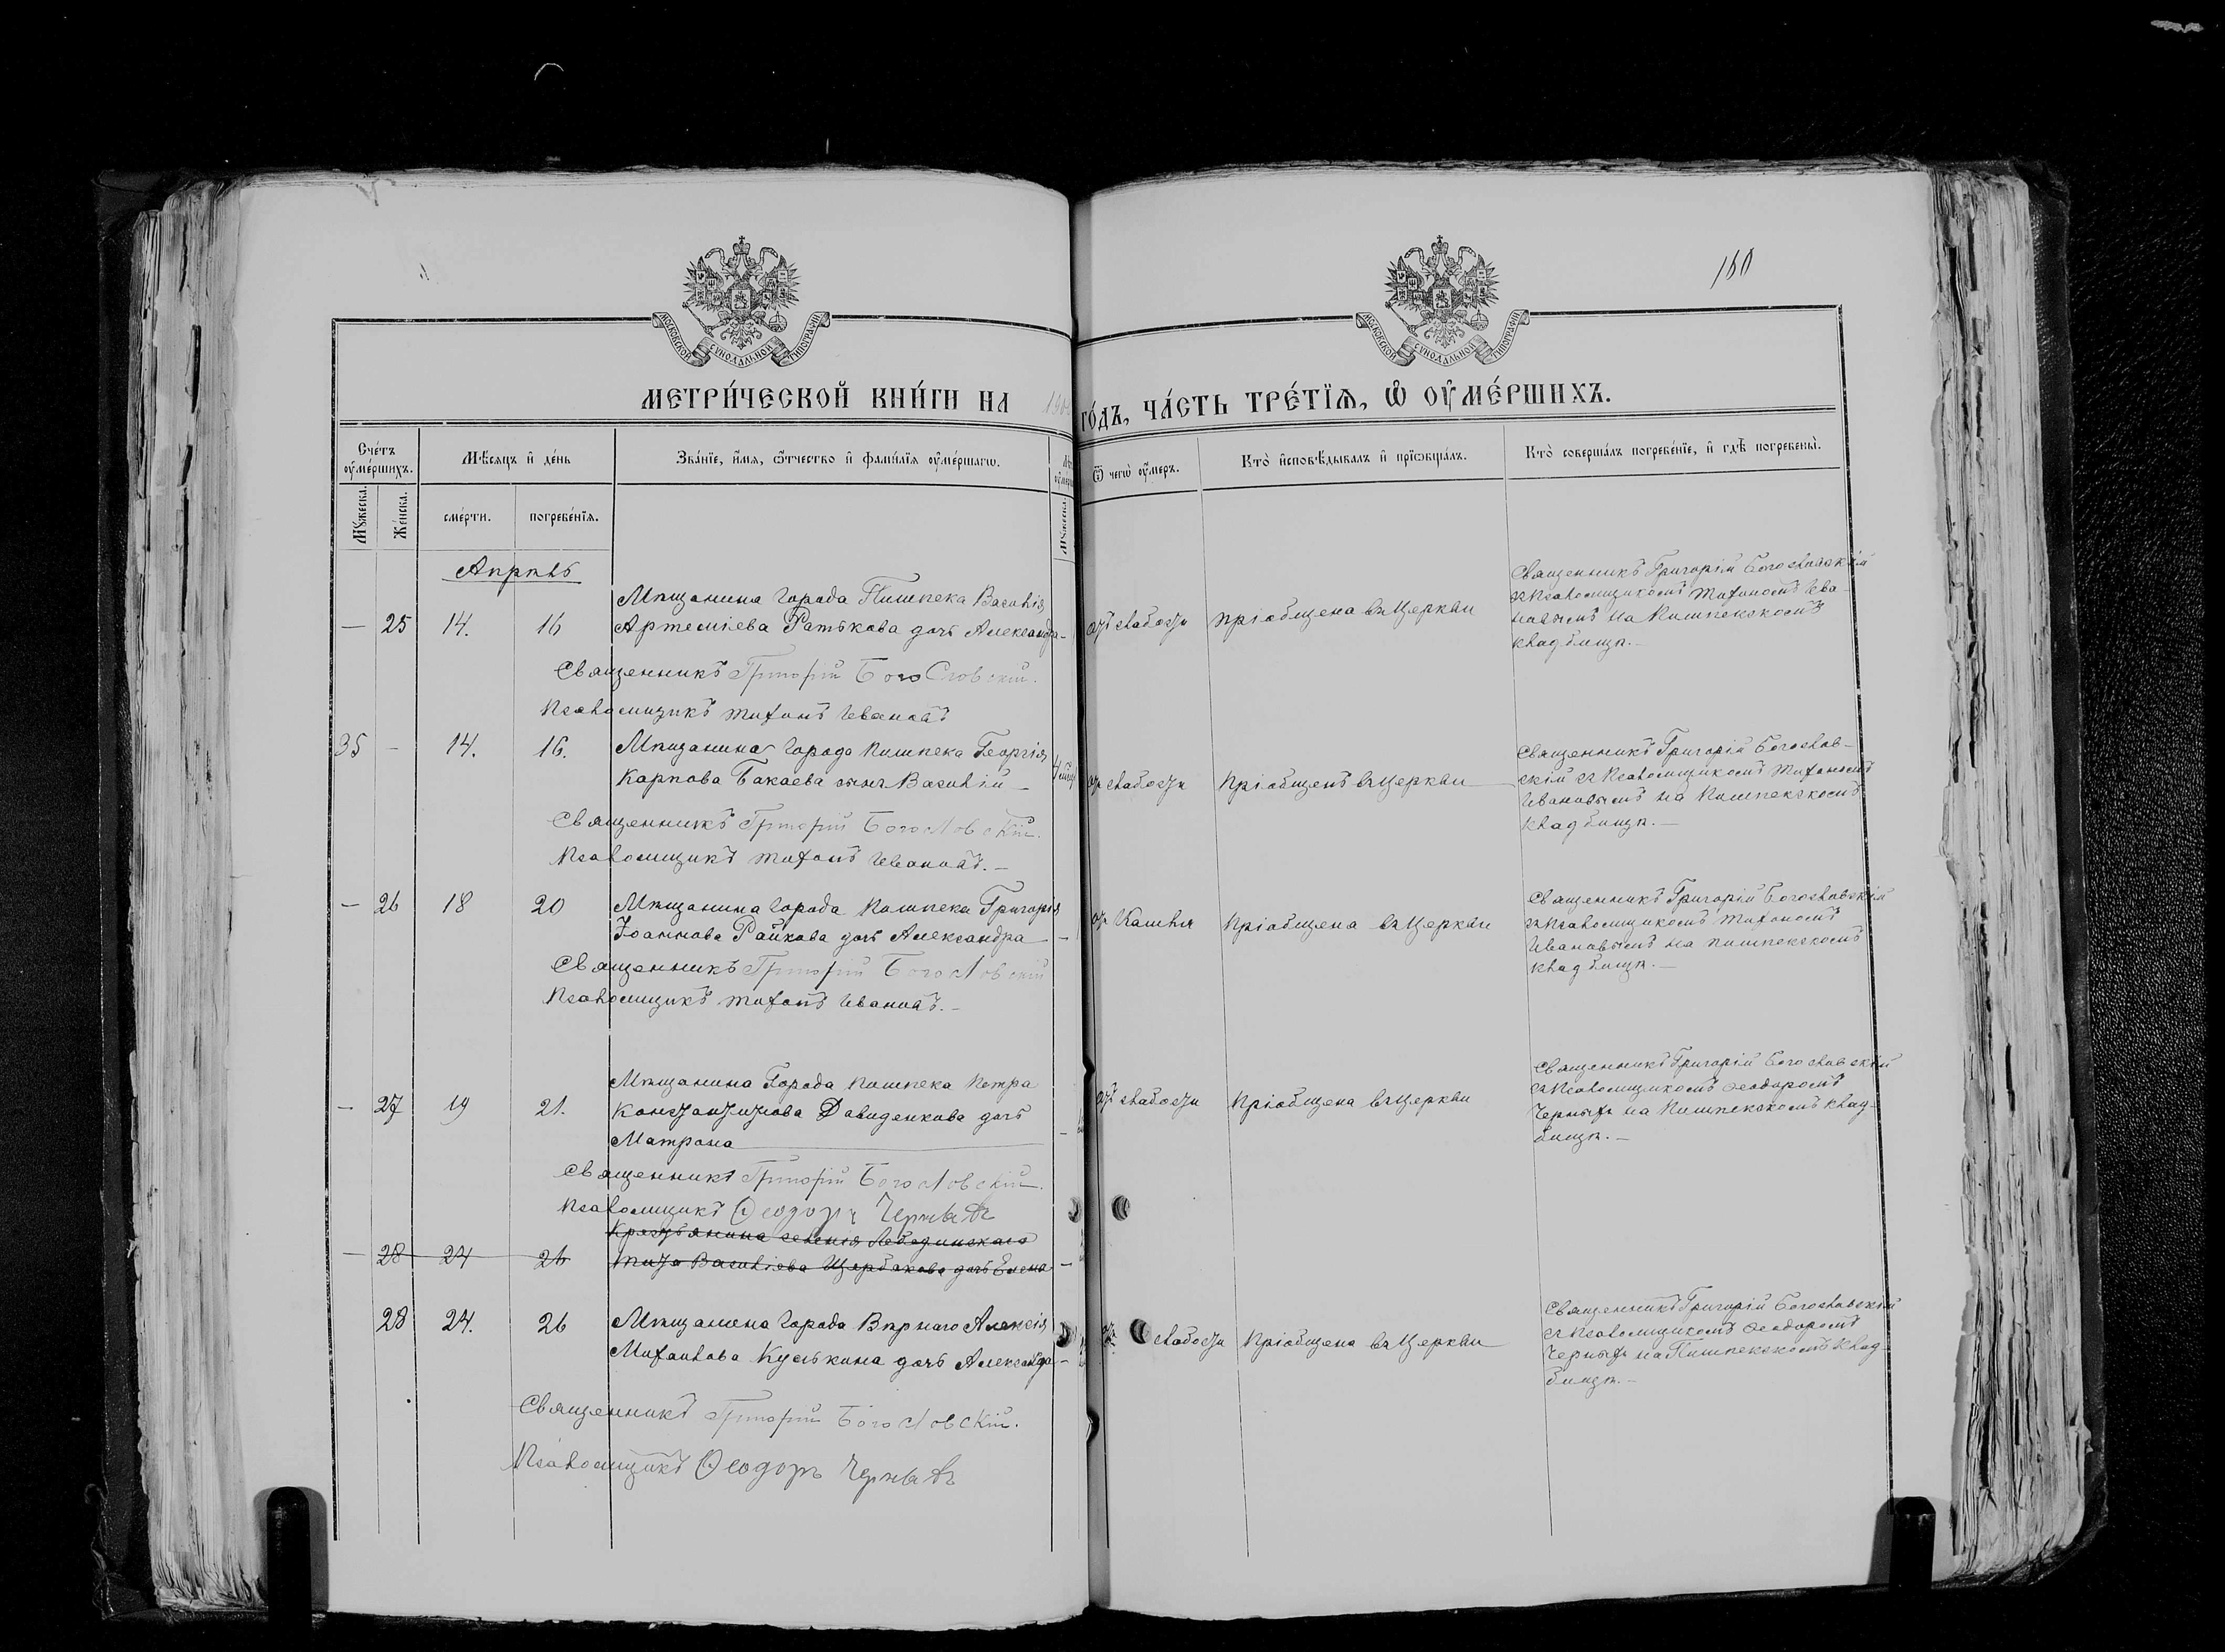 160
МОСКОВСКОЙ СѴНОДАЛЬНОЙ ТИПОГРАФІИ
МОСКОВСКОЙ СѴНОДАЛЬНОЙ ТИПОГРАФІИ
МЕТРИ́ЧЕСКОЙ КНИ́ГИ НА ГО́ДЪ, ЧА́СТЬ ТРЕ́ТЇѦ, Ѡ ОУМЕ́РШИХЪ.
Сче́тъ оуме́ршихъ.
Мѣ́сяцъ и де́нь
Зва́нїе, и́мя, ѻтчество и фами́лїя оуме́ршагѡ.
Ѿ чегѡ̀ оу́меръ.
Кто̀ исповѣ́дывалъ и прїѡбща́лъ.
Кто̀ соверша́лъ погребе́нїе, и гдѣ̀ погребены̀.
Мꙋ́жеска.
Же́нска.
сме́рти.
погребе́нїя.
Мꙋ́жеска.
Апрѣль
— 25 14. 16
Мѣщанина города Пишпека Василія
Артеміева Ратькова дочь Александра —
отъ слабости
пріобщена въ Церкви
Священникъ Григорій Богословскій
съ Псаломщикомъ Тихономъ Ива-
новымъ на Пишпекскомъ
кладбищѣ. —
Священникъ Григорій Богословскій.
Псаломщикъ Тихонъ Ивановъ
35 — 14. 16.
Мѣщанина города Пишпека Георгія
Карпова Бакаева сынъ Василій —
от слабости
Пріобщенъ въ Церкви
Священникъ Григорій Богослов-
скій съ Псаломщикомъ Тихономъ
Ивановымъ на Пишпекскомъ
кладбищѣ. —
Священникъ Григорій Богословскій.
Псаломщикъ Тихонъ Ивановъ. —
— 26 18 20
Мѣщанина города Пишпека Григорія
Іоаннова Райкова дочь Александра —
от Кашля
Пріобщена въ Церкви
Священникъ Григорій Богословскій
съ Псаломщикомъ Тихономъ
Ивановымъ на пишпекскомъ
кладбищѣ. —
Священникъ Григорій Богословскій
Псаломщикъ Тихонъ Ивановъ. —
— 27 19 21.
Мѣщанина Города Пишпека Петра
Константинова Давиденкова дочь
Матрона
отъ слабости
Пріобщена въ Церкви
Священникъ Григорій Богословскій
съ Псаломщикомъ Ѳеодоромъ
Черныхъ на Пишпекскомъ клад-
бищѣ. —
Священникъ Григорій Богословскій.
Псаломщикъ Ѳеодоръ Черныхъ
Крестьянина селенія Лебединскаго
— 28 24 26
Тита Василіева Щербакова дочь Елена —
28 24. 26
Мѣщанина города Вѣрнаго Алексія
Михаилова Куськина дочь Александра —
слабости
Пріобщена въ Церкви
Священникъ Григорій Богословскій
съ Псаломщикомъ Ѳеодоромъ
Черныхъ на Пишпекскомъ Клад-
бищѣ. —
Священникъ Григорій Богословскій.
Псаломщикъ Ѳеодоръ Черныхъ